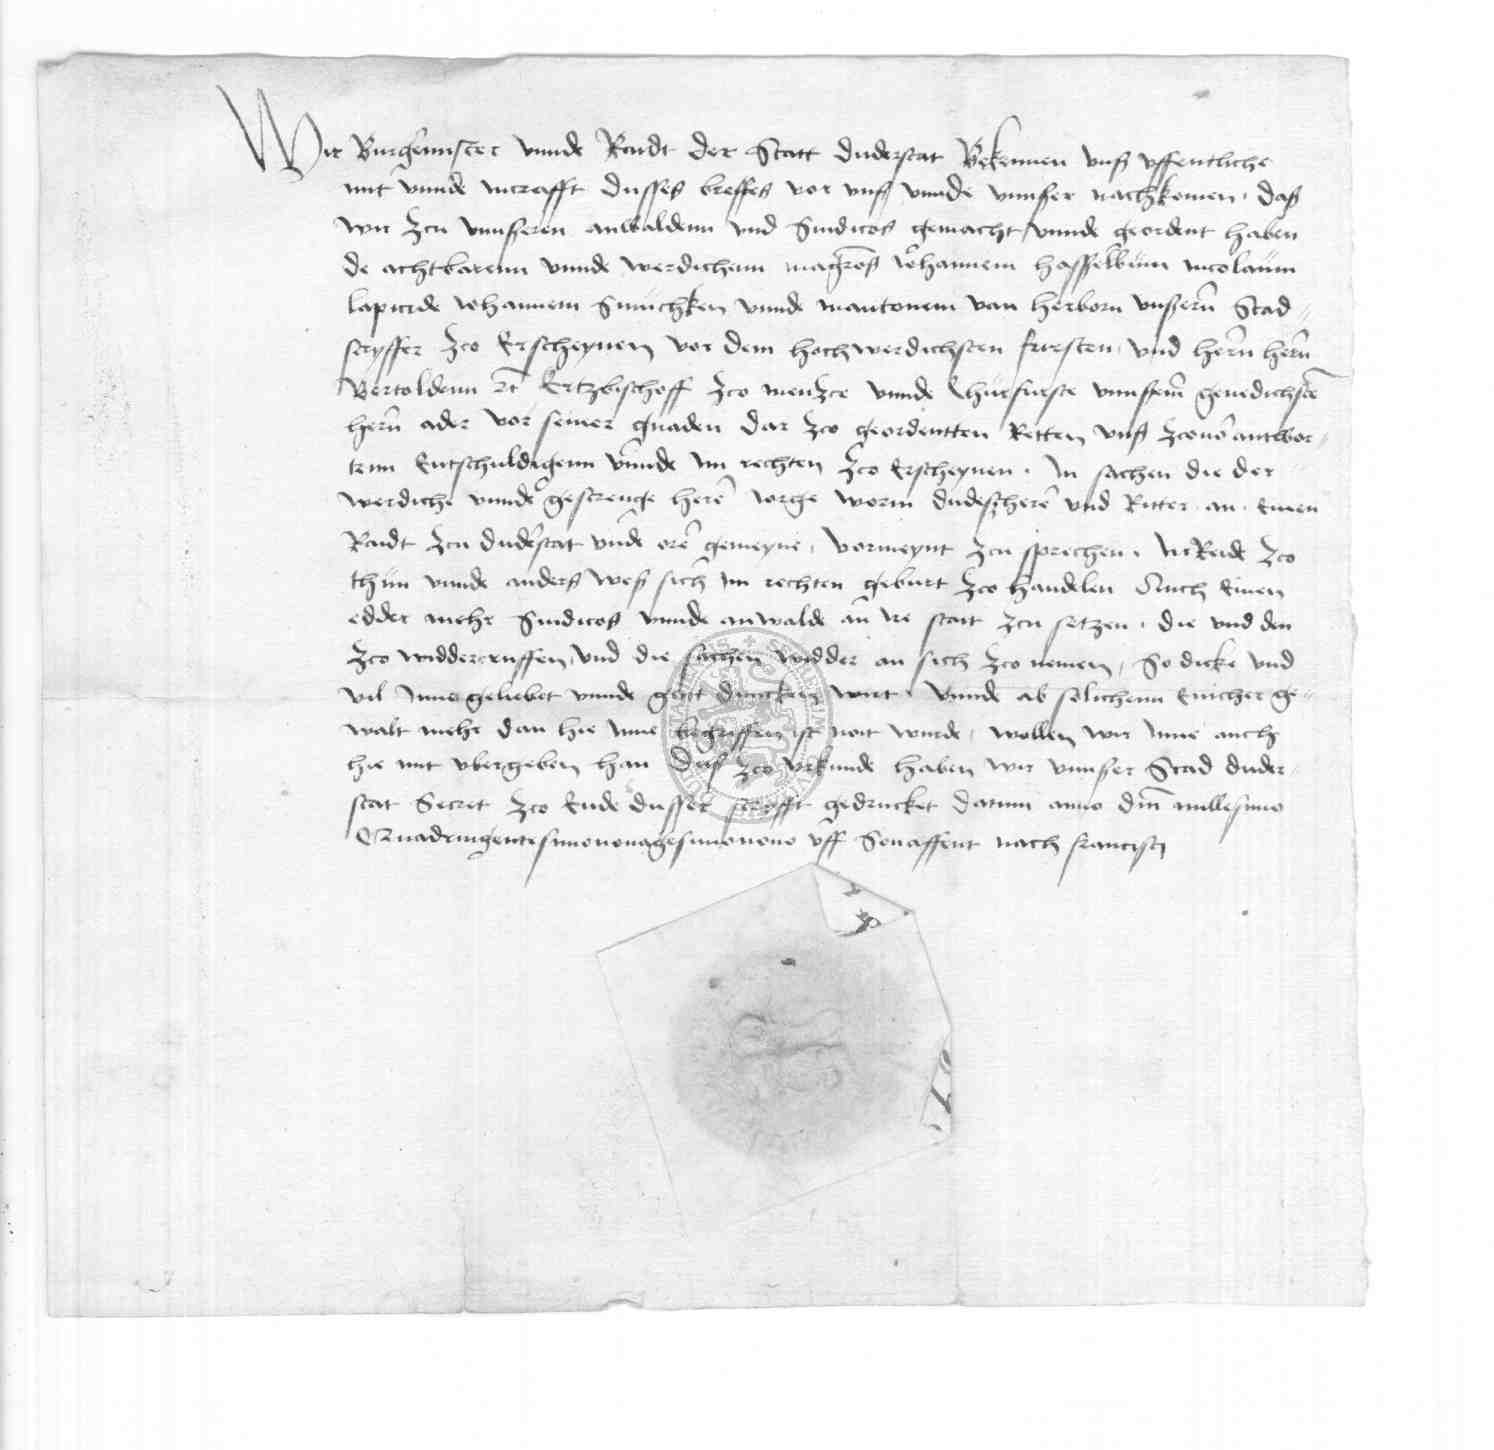 Wir Burgermister vnnde Raidt der Statt duderstat Bekennen vnß vffentliche
mit vnnde in crafft dusses breffes vor vnß vnnde vnnser nachkomen · daß
wir Zcu vnnseren anwaldenn vnd Sindicos gemacht vnnde geordent haben
de achtbarenn vnnde werdichenn magr̄os Johannem hasselbüm nicolaüm
lapicide Johannem Smüchken vnnde mantonem van herborn vnsserñ Stad-
scryffer Zco Erscheynen vor dem hochwerdichsten fursten · vnd herñ herñ
Bertoldenn Ertzbischoff Zco menZce vnnde Churfurste vnnsserm̄ genedichstē
herñ ader vor seiner gnaden dar Zco geordentten Retten vnß antwor-
tenn Entschuldigenn vnnde Im rechten Zco Erscheynen · In sachen die der
werdiche vnnde gestrenge herē Jorge worm dudeßcherē vnd Ritter · an · Einen
Raidt Zcu duderstat vnde orē gemeyne · vormeynt Zcu sprechen · Zco
thün vnnde anders weß sich Im rechten geburt Zco handelen Auch Einen
edder mehr Sindicos vnnde anwalde an ire statt Zcu setzen · die vnd den
Zco widderruffen, vnd die sachen widder an sich Zco nemen, So dicke vnd
vil Inne geliebet vnnde gütt düncken wirt · Vnnde ab solichenn Einicher ge-
walt mehr dan hie Inne begriffen ist noit wurde, wollen wir Inne auch
hie mit vbergeben han Deß Zco vrkunde haben wir vnnser Stad duder-
stat Secret Zco Ende dusser scryfft gedrucket datum anno dm̄ millesimo
Quadringentesimononagesimonono vff Sonaffent nach francisci